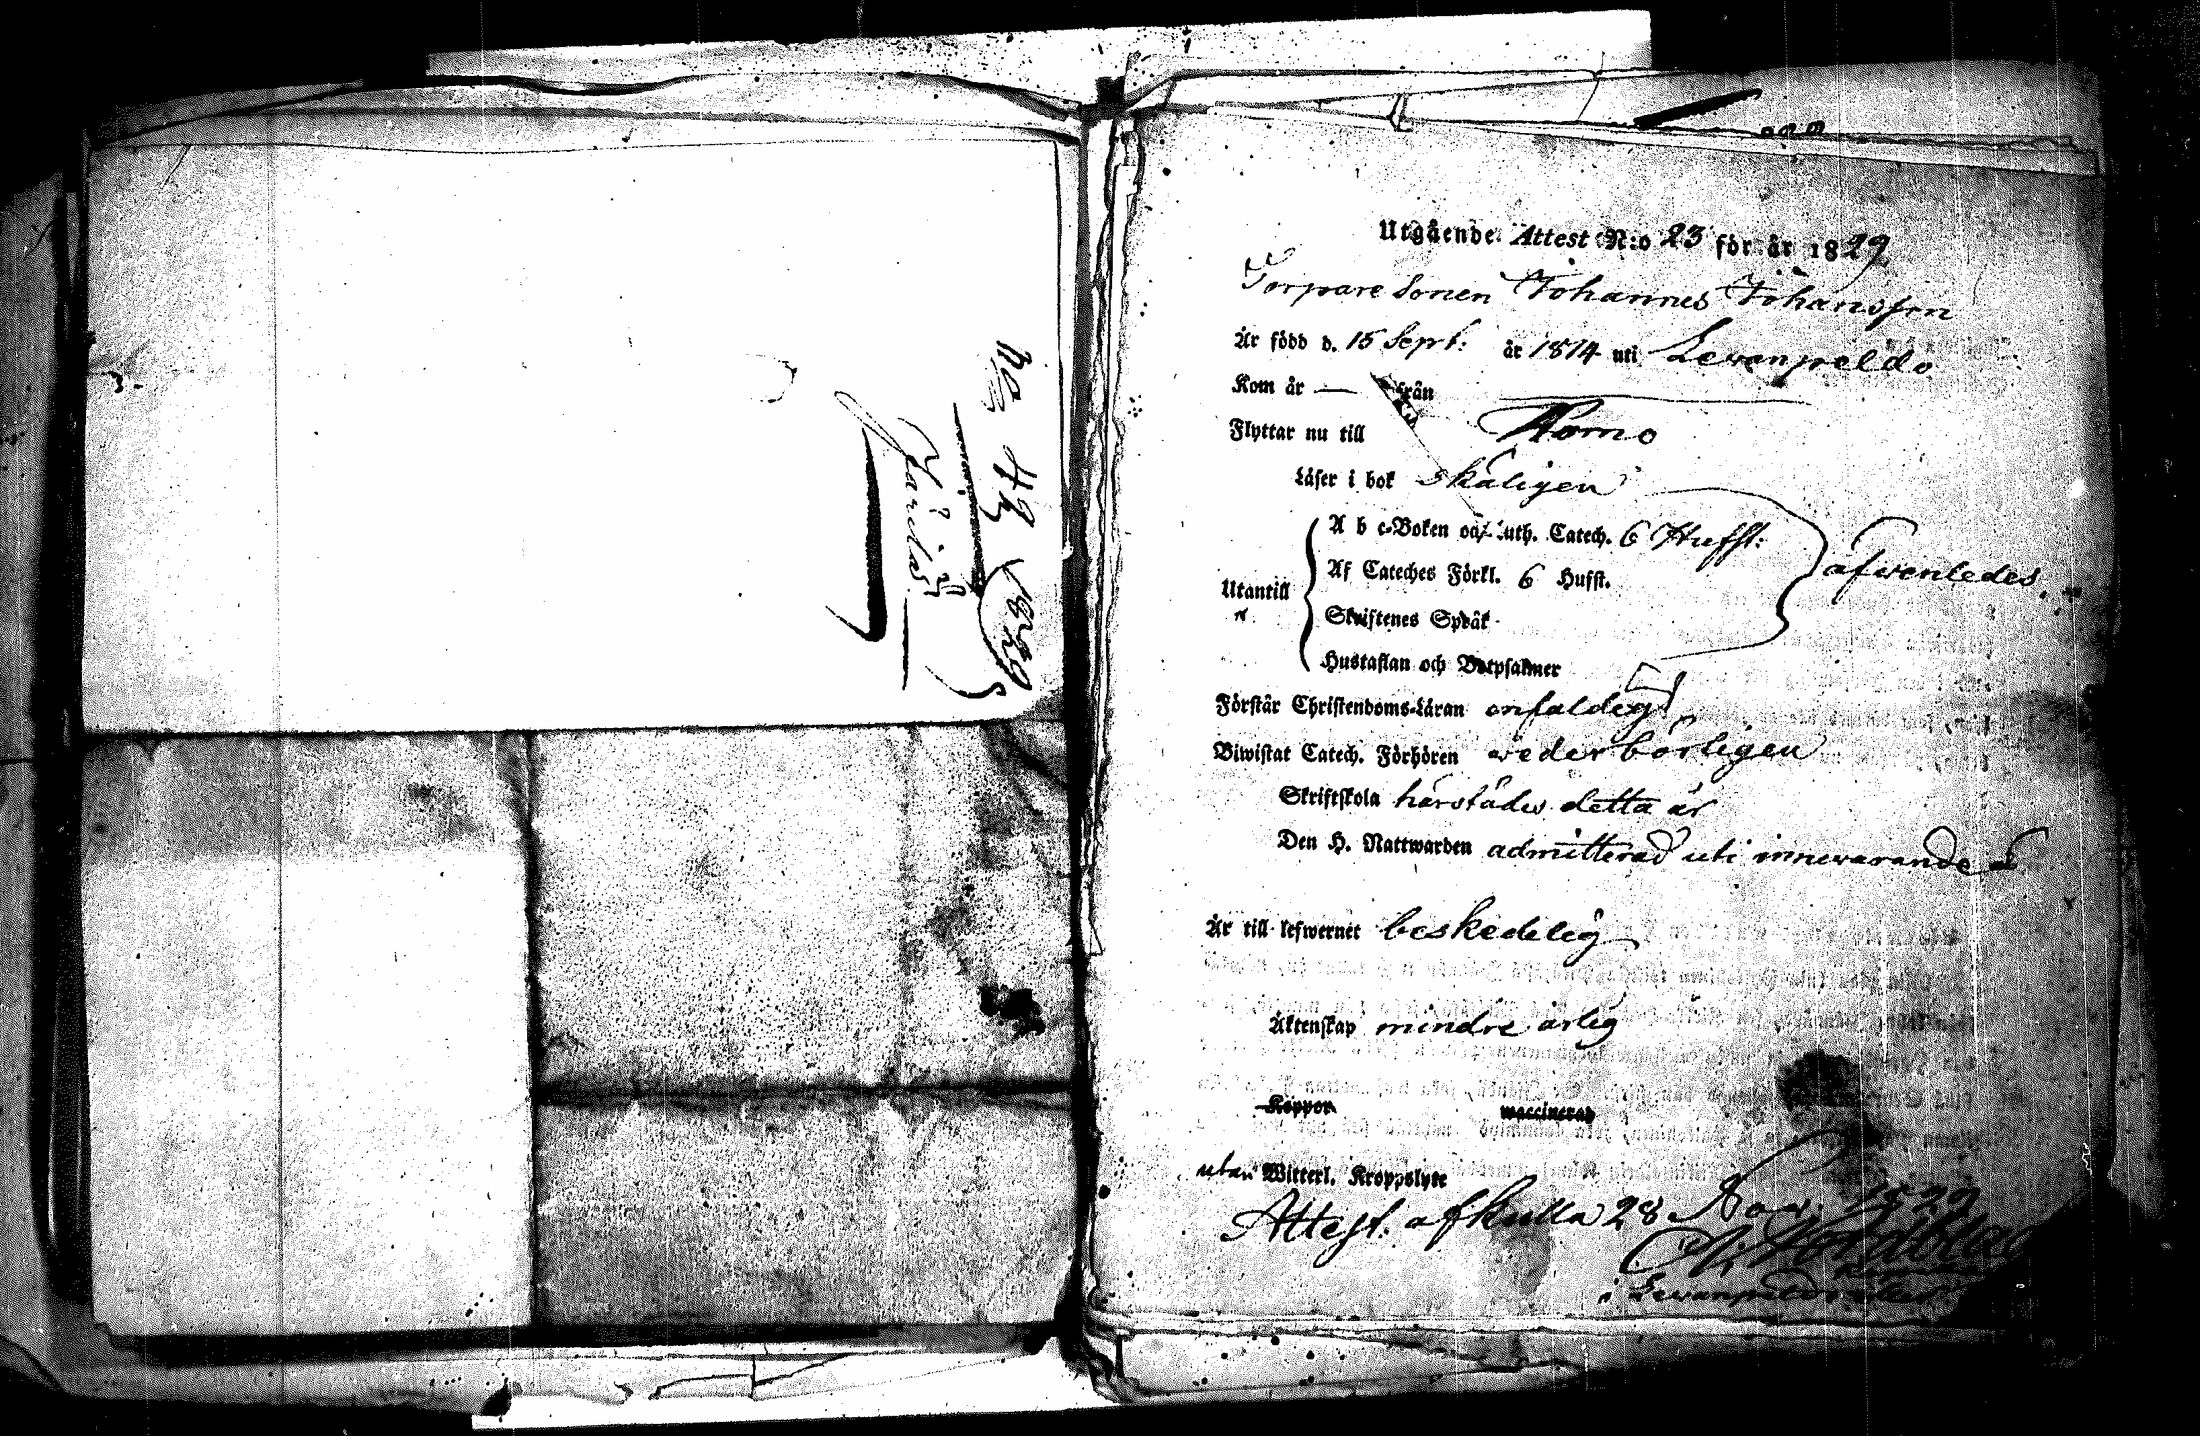 No 42 (1829)
Utgående Attest N:o 23 för år 1829
Torpare Sonen Johannes Johansson
Är född d. 15 Sept: år 1814 uti Lewanpeldo
Kom år — från
Flyttar nu till Nomo
Läser i bok skäligen
A b c-Boken och Luth. Catech. 6 Hufst:
Af Cateches Förkl. 6 Hufst. äfwenledes.
Utantill
Skriftenes Språk
Hustaflan och Botpsalmer
Förstår Christendoms-Läran enfaldigt
Biwistat Catech. Förhören wederbörligen
Skriftskola härstädes detta år
Den H. Nattwarden admitterad uti innewarande år
Är till lefwernet beskedelig
Äktenskap mindre årig
Koppor waccinerad
utan Witterl. Kroppslyte
Attest. af Kulla 28 Nov. 1829
A: Nordblad
i Lewanpeldo